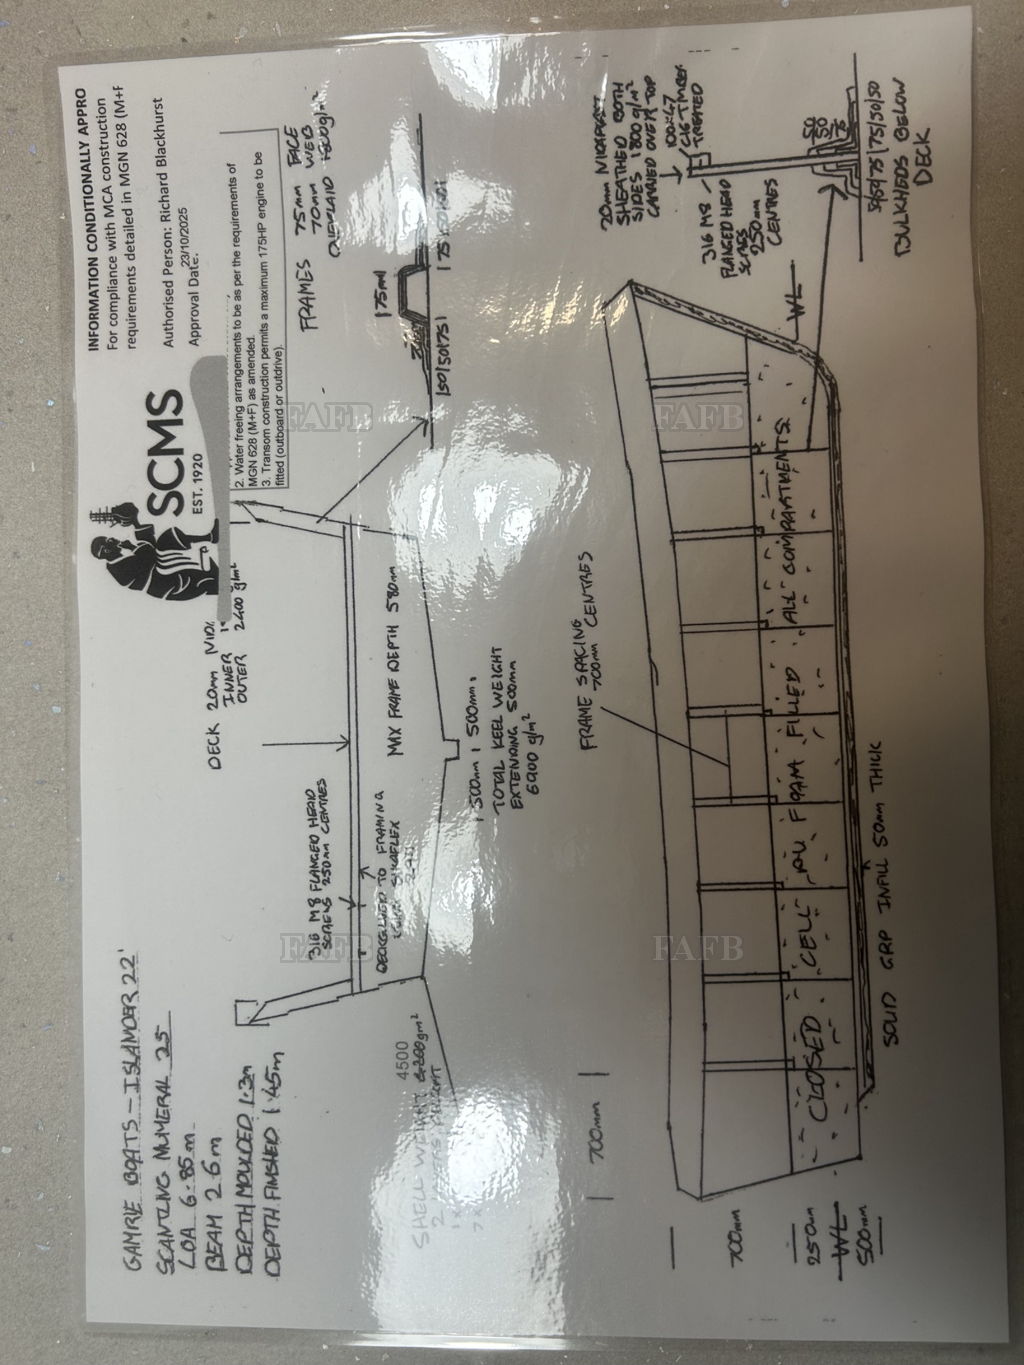 GAMRIE BOATS - ISLANDER 22'
SCANTLING NUMERAL 25
LOA 6.85m
BEAM 2.6m
DEPTH MOULDED 1.3m
DEPTH FINISHED 1.45m
SCMS
EST. 1920
INFORMATION CONDITIONALLY APPRO
For compliance with MCA construction
requirements detailed in MGN 628 (M+F
Authorised Person: Richard Blackhurst
23/10/2025
Approval Date:
2. Water freeing arrangements to be as per the requirements of
MGN 628 (M+F) as amended.
3. Transom construction permits a maximum 175HP engine to be
fitted (outboard or outdrive).
DECK 20mm
INNER
OUTER 2400 g/m²
316 M8 FLANGED HEAD
SCREWS 250mm CENTRES
TO FRAMING
SIKAFLEX
MAX FRAME DEPTH 580mm
SHELL WEIGHT
4500
g/m²
500mm 500mm
TOTAL KEEL WEIGHT
EXTENDING 500mm
6900 g/m²
FRAMES 75mm FACE
70mm WEB
OVERLAID
175mm
150/50/75
FRAME SPACING
700mm CENTRES
SHEATHED BOTH
SIDES 1800 g/m²
CARRIED OVER TOP
100x47
C16 TIMBER
TREATED
316 M8
FLANGED HEAD
SCREWS
250mm
CENTRES
50
50
75
75/50/50
BULKHEADS BELOW
DECK
WL
CLOSED CELL PU FOAM FILLED ALL COMPARTMENTS
SOLID GRP INFILL 50mm THICK
700mm
700mm
250mm
WL
500mm
FAFB
FAFB
FAFB
FAFB